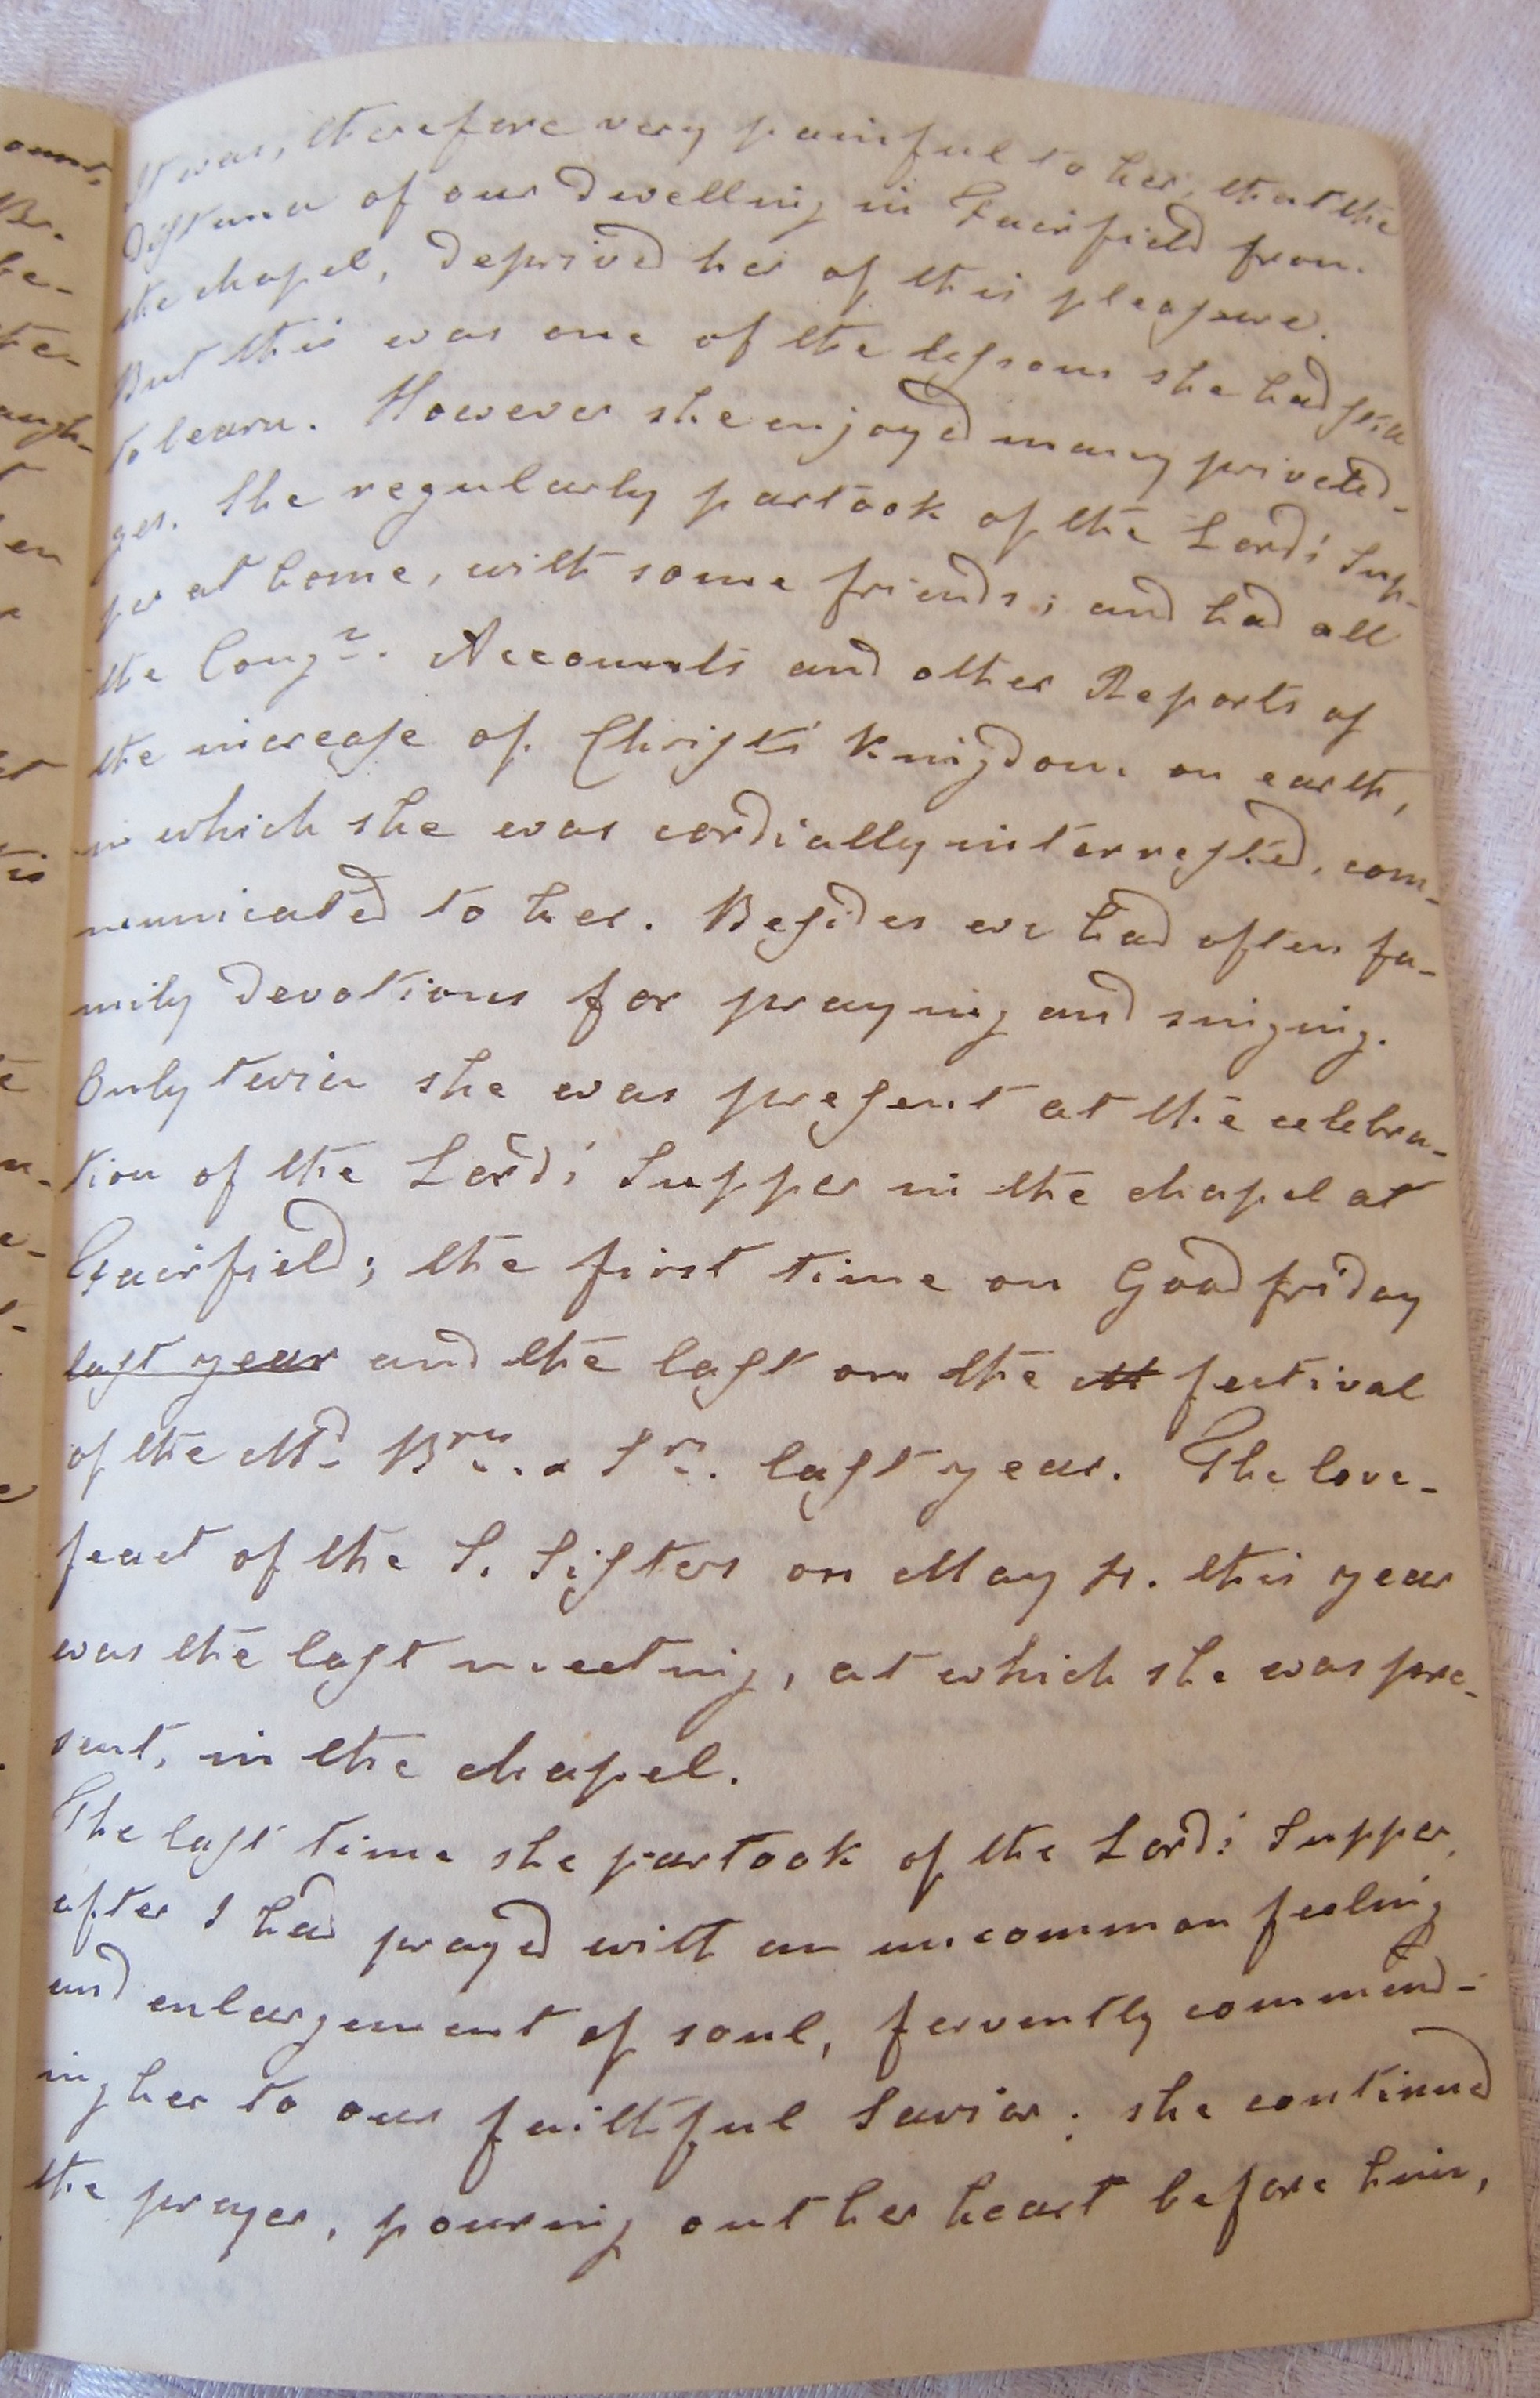 It was, therefore very painful to her, that the
distance of our dwelling in Fairfield from
the chapel, deprived her of this pleasure.
But this was one of the lessons she had still
to learn. However she enjoyed many priveled-
ges. She regularly partook of the Lord's Sup-
per at home, with some friends; and had all
the Congn. Accounts and other Reports of
the increase of Christs' Kingdom on earth,
in which she was cordially interrested, com-
municated to her. Besides we had often fa-
mily devotions for praying and singing.
Only twice she was present at the celebra-
tion of the Lord's Supper in the chapel at
Fairfield; the first time on Good friday
last year and the last on the M festival
of the Md Brn. & Srs. last year. The love-
feast of the S. Sisters on May 4. this year
was the last meeting, at which she was pre-
sent, in the chapel.
The last time she partook of the Lord's Supper,
after I had prayed with an uncommon feeling
and enlargement of soul, fervently commend-
ing her to our faithful Savior; she continued
the prayer, pouring out her heart before him,
ount,
Br.
be-
te-
ugh-
en
tis